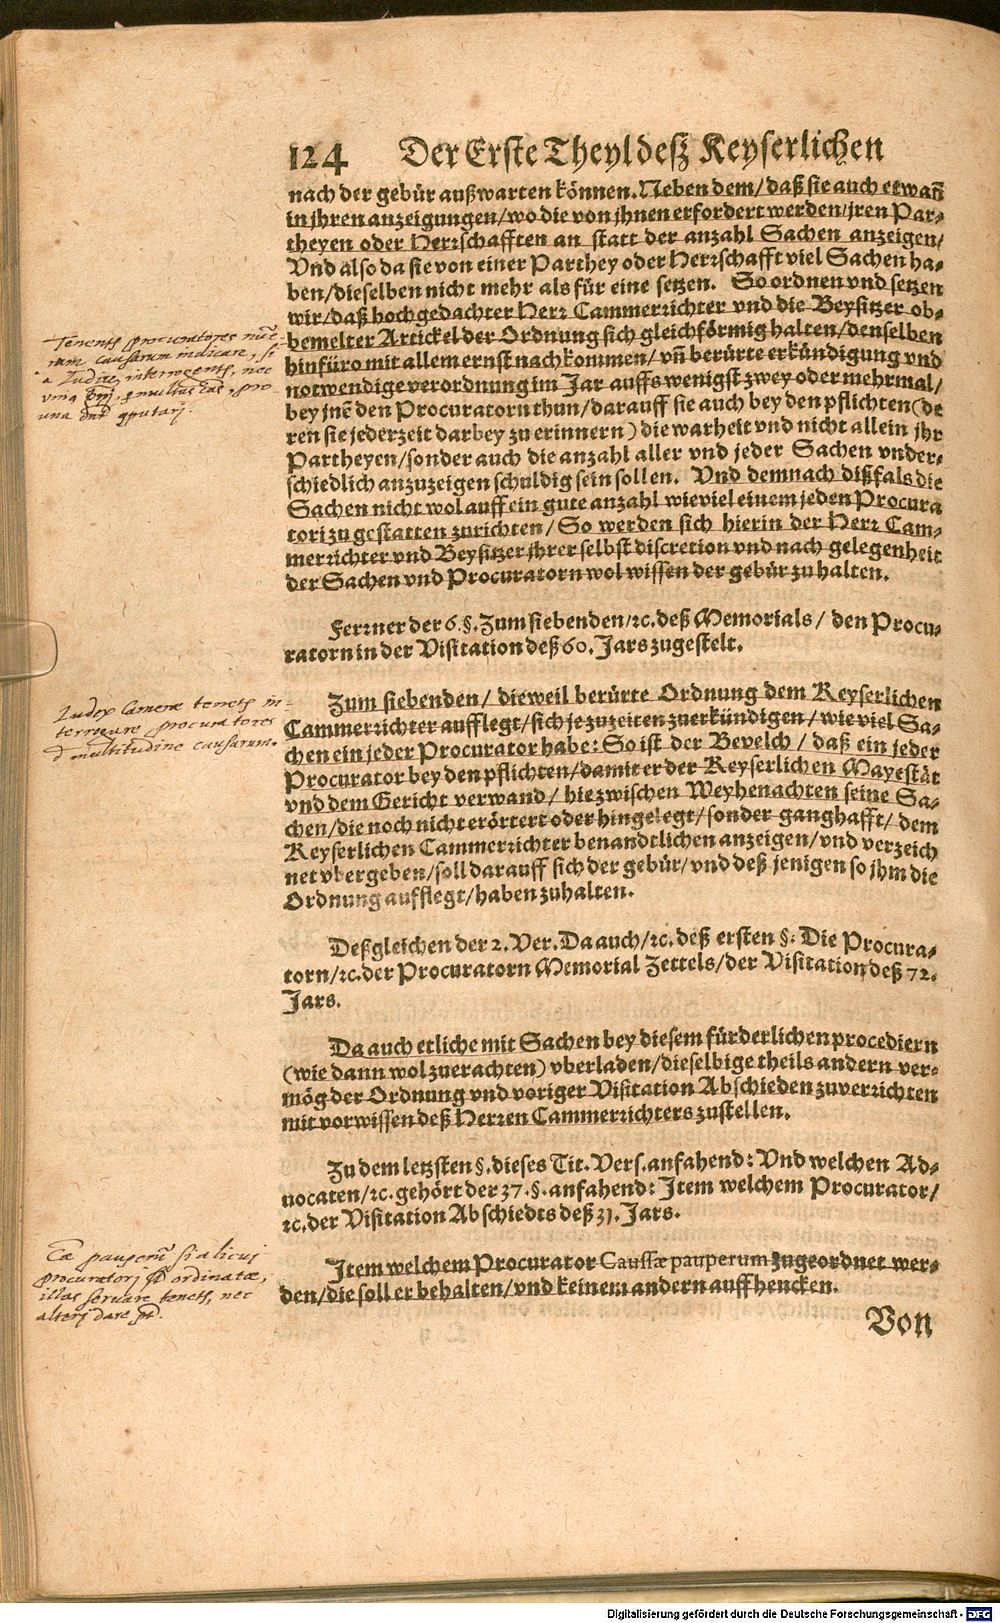 124 Der Erste Theyl deß Keyserlichen
nach der gebür außwarten können. Neben dem/ daß sie auch etwañ
in jhren anzeigungen/ wo die von jhnen erfordert werden/ jren Par-
theyen oder Herrschafften an statt der anzahl Sachen anzeigen/
Vnd also da sie von einer Parthey oder Herrschafft viel Sachen ha-
ben/ dieselben nicht mehr als für eine setzen. So ordnen vnd setzen
wir/ daß hochgedachter Herr Cammerrichter vnd die Beysitzer ob-
bemelter Artickel der Ordnung sich gleichförmig halten/ denselben
hinfüro mit allem ernst nachkommen/ vñ berürte erkündigung vnd
notwendige verordnung im Jar auffs wenigst zwey oder mehrmal/
bey jnẽ den Procuratorn thun/ darauff sie auch bey den pflichten (de
ren sie jederzeit darbey zu erinnern) die warheit vnd nicht allein jhr
Partheyen/ sonder auch die anzahl aller vnd jeder Sachen vnder-
schiedlich anzuzeigen schuldig sein sollen. Vnd demnach dißfals die
Sachen nicht wol auff ein gute anzahl wieviel einem jeden Procura
tori zu gestatten zurichten/ So werden sich hierin der Herr Cam-
merrichter vnd Beysitzer jhrer selbst discretion vnd nach gelegenheit
der Sachen vnd Procuratorn wol wissen der gebür zu halten.
Ferrner der 6. §. Zum siebenden/ ꝛc. deß Memorials/ den Procu-
ratorn in der Visitation deß 60. Jars zugestelt.
Zum siebenden/ dieweil berürte Ordnung dem Keyserlichen
Cammerrichter aufflegt/ sich jezuzeiten zuerkündigen/ wie viel Sa-
chen ein jeder Procurator habe: So ist der Bevelch/ daß ein jeder
Procurator bey den pflichten/ damit er der Keyserlichen Mayestät
vnd dem Gericht verwand/ hiezwischen Weyhenachten seine Sa-
chen/ die noch nicht erörtert oder hingelegt/ sonder ganghafft/ dem
Keyserlichen Cammerrichter benandtlichen anzeigen/ vnd verzeich
net vbergeben/ soll darauff sich der gebür/ vnd deß jenigen so jhm die
Ordnung aufflegt/ haben zuhalten.
Deßgleichen der 2. Ver. Da auch/ ꝛc. deß ersten §. Die Procura-
torn/ ꝛc. der Procuratorn Memorial Zettels/ der Visitation deß 72.
Jars.
Da auch etliche mit Sachen bey diesem fürderlichen procediern
(wie dann wol zuerachten) vberladen/ dieselbige theils andern ver-
mög der Ordnung vnd voriger Visitation Abschieden zuverrichten
mit vorwissen deß Herren Cammerrichters zustellen.
Zu dem letzsten §. dieses Tit. Vers. anfahend: Vnd welchen Ad-
uocaten/ ꝛc. gehört der 37. §. anfahend: Item welchem Procurator/
ꝛc. der Visitation Abschiedts deß 31. Jars.
Item welchem Procurator Caussæ pauperum zugeordnet wer-
den/ die soll er behalten/ vnd keinem andern auffhencken.
Von
procuratores
causarum indicare, si
una
Iudex Cameræ in-
terrogare procuratores
multitudine causarum.
si alicui
procuratori ordinatæ,
illas servare nec
alteri dare
Digitalisierung gefördert durch die Deutsche Forschungsgemeinschaft - DFG